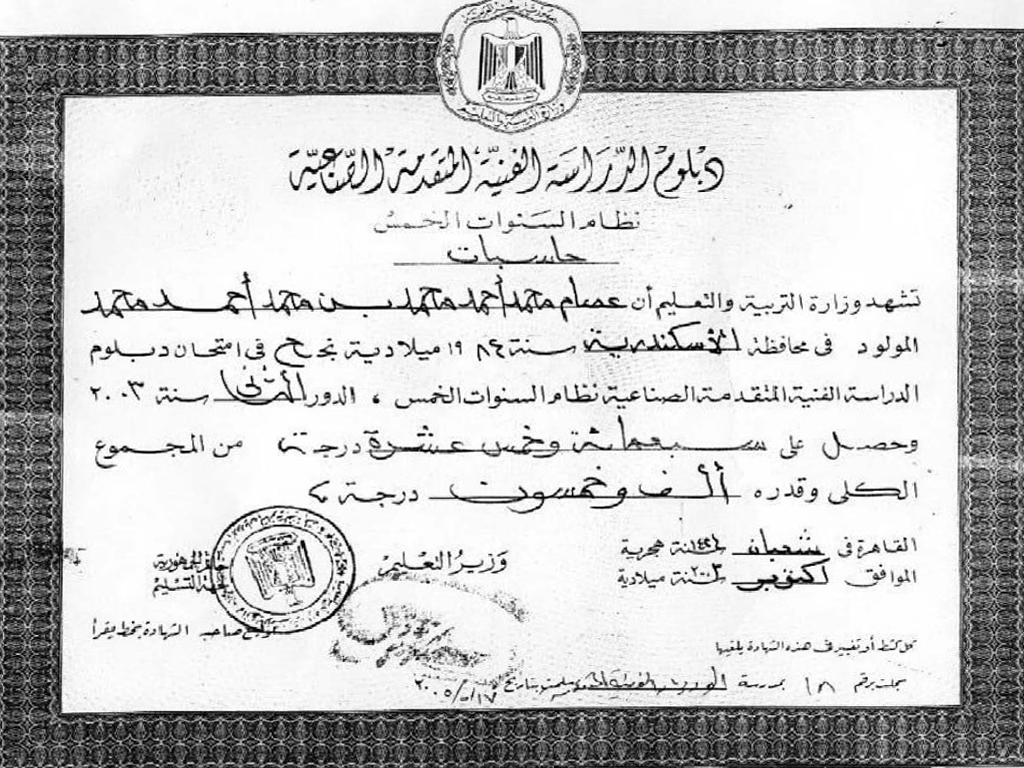 دبلوم الدراسة الفنية المتقدمة الصناعية
نظام السنوات الخمس
حاسبات
تشهد وزارة التربية والتعليم أن عصام محمد أحمد محمد بن محمد أحمد محمد
المولود فى محافظة الأسكندرية سنة ١٩٨٤ ميلادية نجح فى امتحان دبلوم
الدراسة الفنية المتقدمة الصناعية نظام السنوات الخمس ، الدور الثانى سنة ٢٠٠٣
وحصل على سبعمائة وخمس عشرة درجة من المجموع
الكلى وقدره ألف وخمسون درجة
القاهرة فى شعبان سنة هجرية
الموافق أكتوبر سنة ٢٠٠٣ ميلادية
وزير التعليم
خاتم الجمهورية
توقيع صاحب الشهادة بخط يقرأ
كل كشط أو تغيير فى هذه الشهادة يلغيها
سجلت برقم ١٨ بمدرسة بتاريخ ٢٠٠٥/٥/١٧